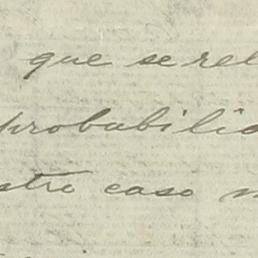 que se rel
probabilid
stro caso n